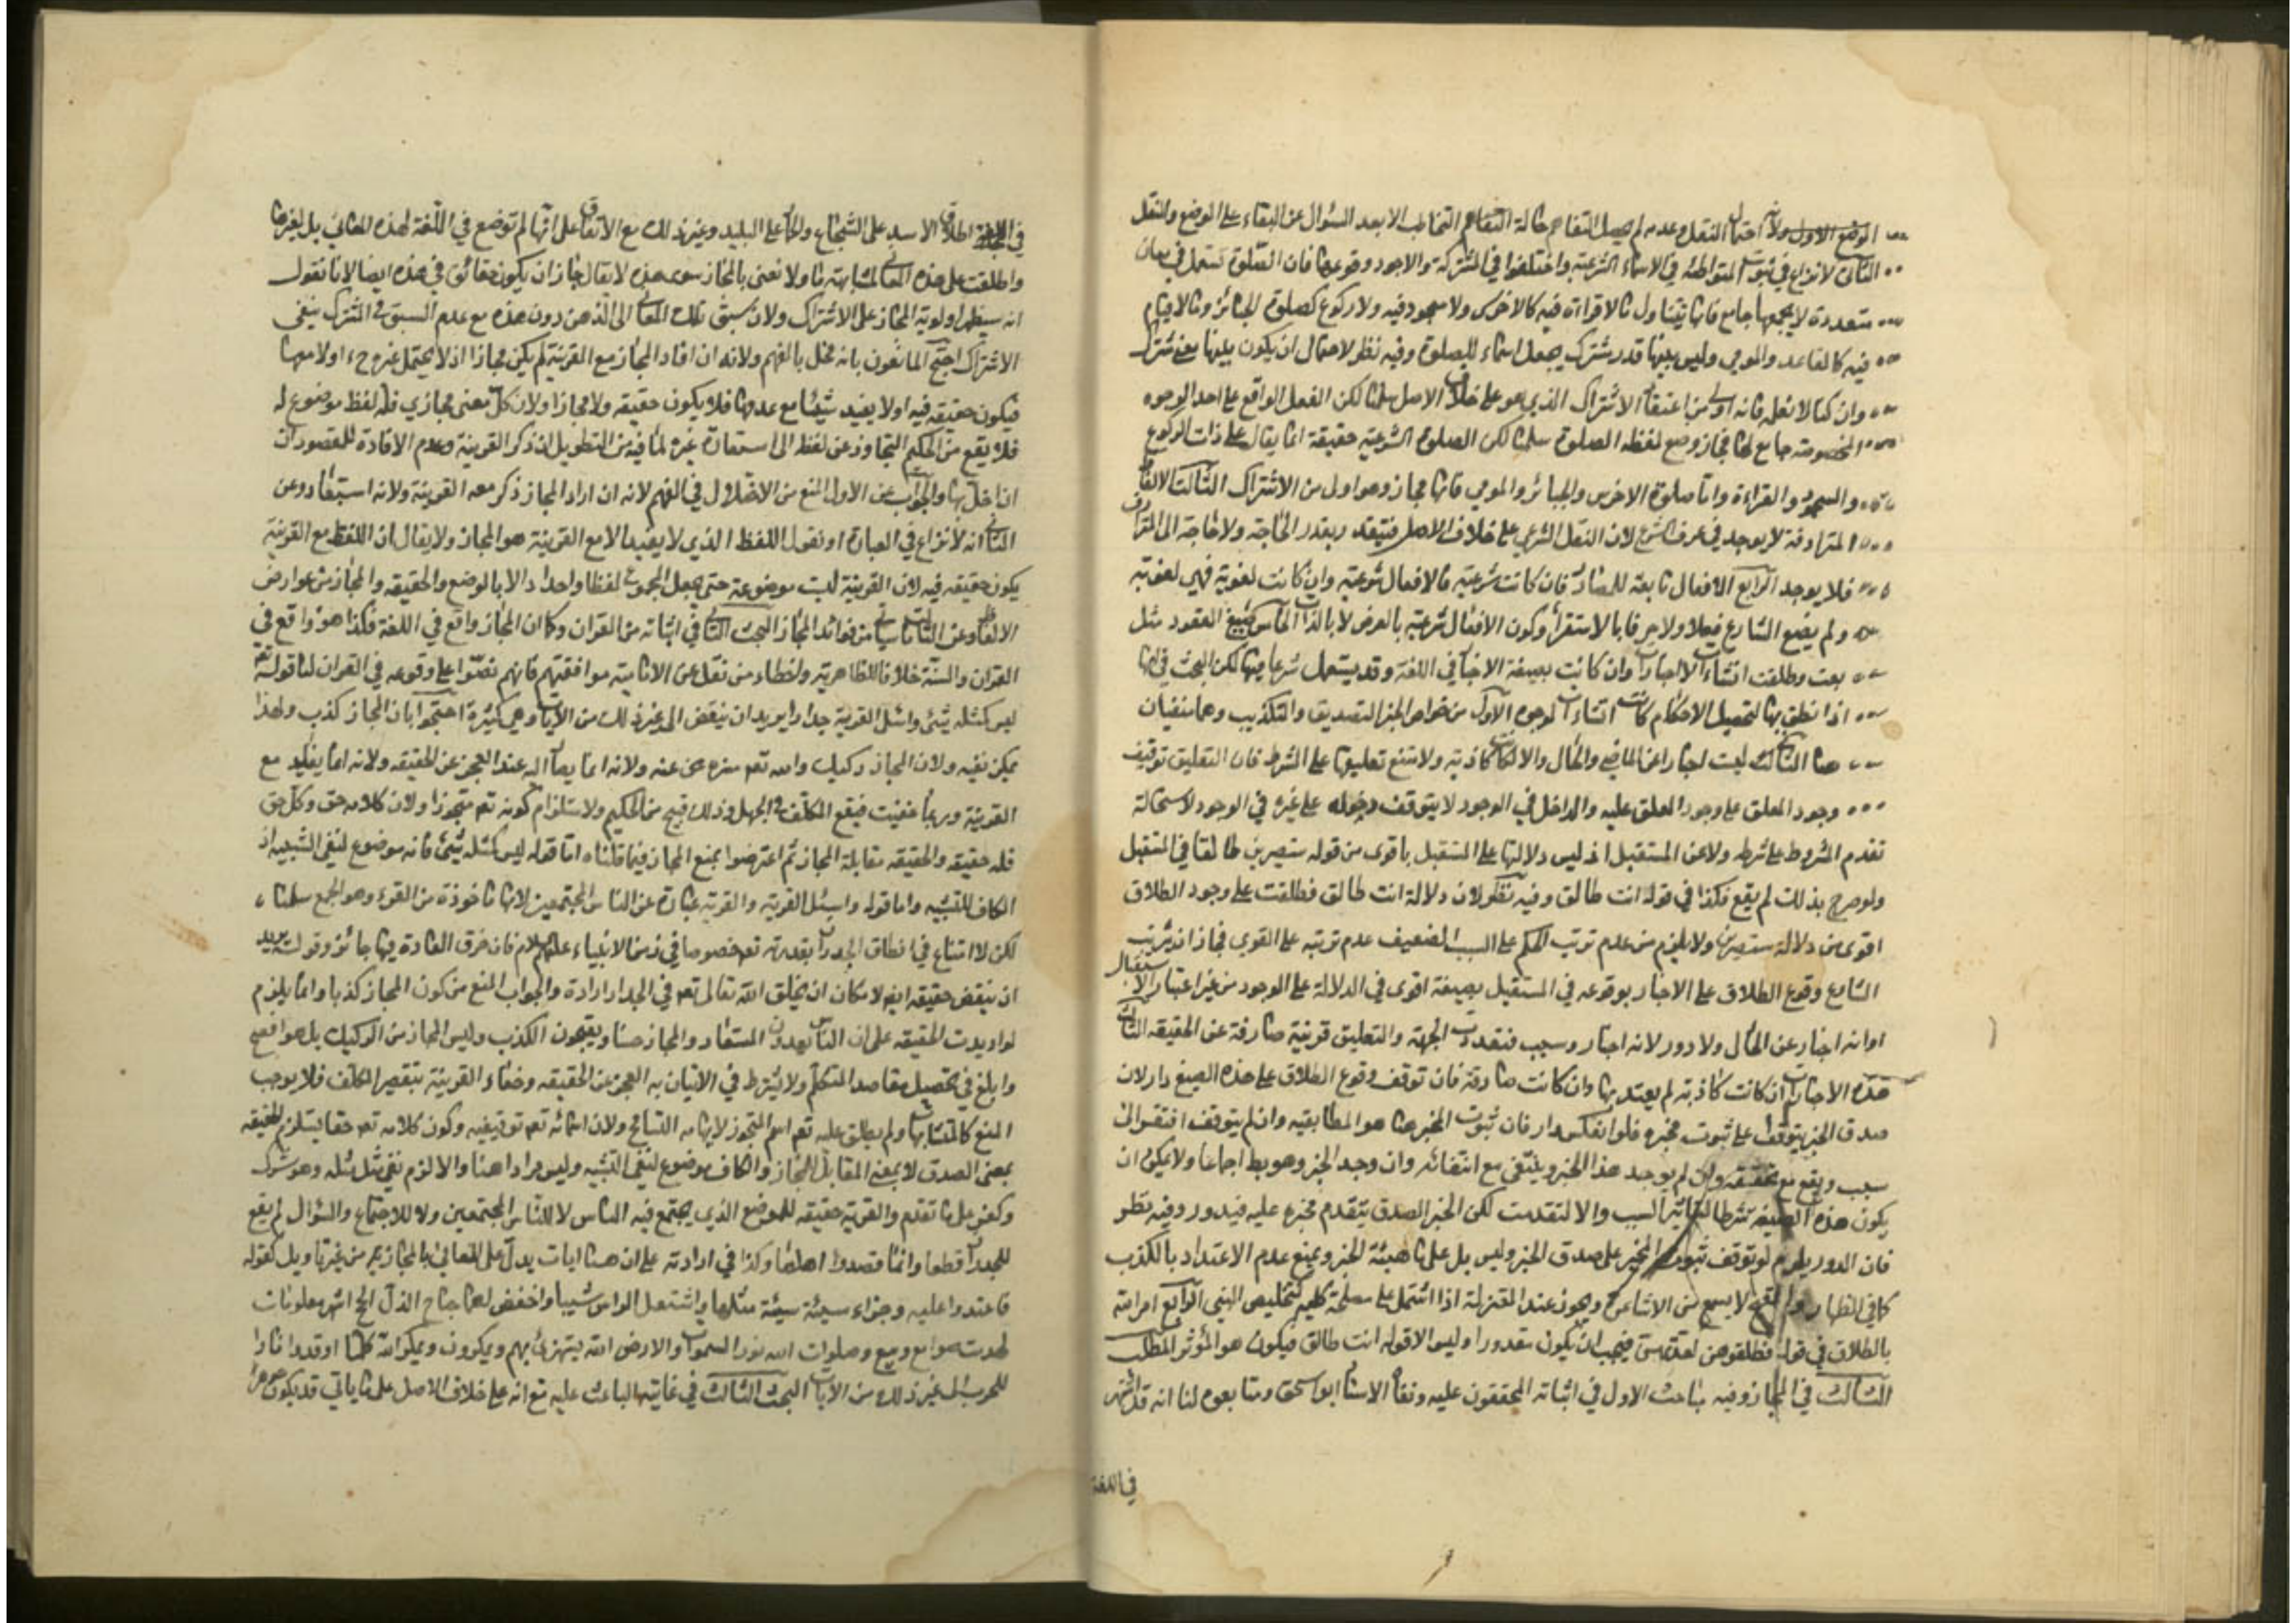 الوضع الاول ولان احتمال النقل وعدمه لم يحصل التفاهم حالة التخاطب الا بعد السؤال عن البقاء على الوضع والنقل
الثاني لا نزاع في ثبوت المتواطئة في الاسماء الشرعية واختلفوا في المشتركة والاجود وقوعها فان الصلوة تستعمل في معان
متعددة لا يجمعها جامع فانها تتناول ما لا قراءة فيه كالاخرس ولا سجود فيه ولا ركوع كصلوة الجنائز وما لا قيام
فيه كالقاعد والمومي وليس بينها قدر مشترك يجعل اسماء للصلوة وفيه نظر لاحتمال ان يكون بينها معنى مشترك
وان كنا لا نعلمه فانه اولى من اعتقاد الاشتراك الذي هو على خلاف الاصل سلمنا لكن الفعل الواقع على احد الوجوه
المخصوصة جامع لها فجاز وضع لفظه الصلوة سلمنا لكن الصلوة الشرعية حقيقة انما يقال على ذات الركوع
والسجود والقراءة واما صلوة الاخرس والجنائز والمومي فانها مجاز وهو اولى من الاشتراك الثالث الالفاظ
المترادفة لا يوجد في عرف الشرع لان النقل الشرعي على خلاف الاصل فيتقدر بقدر الحاجة ولا حاجة الى المترادف
فلا يوجد الرابع الافعال تابعة للمصادر فان كانت شرعية فالافعال شرعية وان كانت لغوية فهي لغوية
ولم يضع الشارع فعلا ولا حرفا بالاستقراء وكون الافعال شرعية بالعرض لا بالذات الخامس صيغ العقود مثل
بعت وطلقت انشاءات لا اخبارات وان كانت بصيغة الاخبار في اللغة وقد يستعمل شرعا فيها لكن البحث في انها
اذا نطق بها لتحصيل الاحكام كانت انشاءات لوجوه الاول من خواص الخبر التصديق والتكذيب وهما منفيان
هنا الثالث ليست اخبارا عن الماضي والحال والا لكانت كاذبة ولامتنع تعليقها على الشرط فان التعليق توقيف
وجود المعلق على وجود المعلق عليه والداخل في الوجود لا يتوقف دخوله على غيره في الوجود لاستحالة
تقدم المشروط على شرطه ولا عن المستقبل اذ ليس دلالتها على المستقبل باقوى من قوله ستصيرين طالقا في المستقبل
ولو صرح بذلك لم يقع فكذا في قوله انت طالق وفيه نظر لان دلالة انت طالق فطلقت على وجود الطلاق
اقوى من دلالة ستصيرين ولا يلزم من عدم ترتب الحكم على السبب الضعيف عدم ترتبه على القوي فجاز ان يرتب
الشارع وقوع الطلاق على الاخبار بوقوعه في المستقبل بصيغة اقوى في الدلالة على الوجود من غير اعتبار الاستقبال
او انه اخبار عن الحال ولا دور لانه اخبار وسبب فتعددت الجهة والتعليق قرينة صارفة عن الحقيقة الثالث
هذه الاخبارات ان كانت كاذبة لم يعتد بها وان كانت صادقة فان توقف وقوع الطلاق على هذه الصيغ دار لان
صدق الخبر يتوقف على ثبوت مخبره فلو انعكس دار فان ثبوت المخبر هنا هو المطابقية وان لم يتوقف افتقر الى
سبب ويقع مع تحققه وان لم يوجد هذا الخبر وينتفي مع انتفائه وان وجد الخبر وهو بط اجماعا ولا يمكن ان
يكون هذه الصيغة شرطا لتاثير السبب والا لتقدمت لكن الخبر الصدق يتقدم مخبره عليه فيدور وفيه نظر
فان الدور يلزم لو توقف ثبوت المخبر على صدق الخبر وليس بل على ماهيئة الخبر ويمنع عدم الاعتداد بالكذب
كما في الظهار والقبح لا يسمع من الاشاعرة ويجوز عند المعتزلة اذا اشتمل على مصلحة كلية كتخليص النبي الرابع امر امته
بالطلاق في قوله فطلقوهن لعدتهن فيجب ان يكون مقدورا وليس الا قوله انت طالق فيكون هو المؤثر المطلب
الثالث في المجاز وفيه مباحث الاول في اثباته المحققون عليه ونفاه الاستاد ابو اسحق ومتابعوه لنا انه قد اشتهر
في اللغة
في اللغة اطلاق الاسد على الشجاع والحمار على البليد وغير ذلك مع الاتفاق على انها لم توضع في اللغة لهذه المعاني بل لغيرها
واطلقت على هذه المعاني لمشابهة ما ولا نعني بالمجاز سوى هذا لا يقال جاز ان يكون حقائق في هذه ايضا لانا نقول
انه سيظهر اولوية المجاز على الاشتراك ولان سبق تلك المعاني الى الذهن دون هذه مع عدم السبق في المشترك ينفي
الاشتراك احتج المانعون بانه مخل بالفهم ولانه ان افاد المجاز مع القرينة لم يكن مجازا اذ لا يحتمل غيره ح او لا معها
فيكون حقيقة فيه او لا يفيد شيئا مع عدمها فلا يكون حقيقة ولا مجازا ولان كل معنى مجازي فله لفظ موضوع له
فلا يقع من الحكيم التجاوز عن لفظه الى استعارة غيره لما فيه من التطويل ان ذكر القرينة وعدم الافادة للمقصود ان
ان اخل بها والجواب عن الاول المنع من الاختلال في الفهم لانه ان اراد المجاز ذكر معه القرينة ولانه استبعاد وعن
الثاني انه لا نزاع في العبارة او نقول اللفظ الذي لا يفيد الا مع القرينة هو المجاز ولا يقال ان اللفظ مع القرينة
يكون حقيقة فيه لان القرينة ليست موضوعة حتى يجعل المجموع لفظا واحدا دالا بالوضع والحقيقة والمجاز من عوارض
الالفاظ وعن الثالث ما ياتي من فوائد المجاز البحث الثاني في اثباته من القران وكما ان المجاز واقع في اللغة فكذا هو واقع في
القران والسنة خلافا للظاهرية واخطاء من نقل عن الامامية موافقتهم فانهم نصوا على وقوعه في القران لنا قوله تعه
ليس كمثله شيئ واسئل القرية جدارا يريد ان ينقض الى غير ذلك من الايات وهي كثيرة احتجوا بان المجاز كذب ولهذا
يمكن نفيه ولان المجاز ركيك والله تعه منزه عنه ولانه انما يصار اليه عند العجز عن الحقيقة ولانه انما يفيد مع
القرينة وربما خفيت فيقع المكلف في الجهل وذلك قبيح من الحكيم ولاستلزام كونه تعه متجوزا ولان كلامه حق وكل حق
فله حقيقة والحقيقة مقابلة المجاز ثم اعترضوا بمنع المجاز فيما قلناه اما قوله ليس كمثله شيئ فانه موضوع لنفي التشبيه اذ
الكاف للتشبيه واما قوله واسئل القرية والقرية عبارة عن الناس المجتمعين لانها ماخوذة من القرء وهو الجمع سلمنا
لكن لا امتناع في انطاق الجدران بقدرته تعه خصوصا في زمن الانبياء عليهم السلام فان خرق العادة فيها جائز وقوله يريد
ان ينقض حقيقة ايضا لامكان ان يخلق الله تعالى في الجدار ارادة والجواب المنع من كون المجاز كذبا وانما يلزم
لو اريدت الحقيقة على ان الناس يعدون المستعار والمجاز حسنا ويقبحون الكذب وليس المجاز من الركيك بل هو افصح
وابلغ في تحصيل مقاصد المتكلم ولا يشترط في الاتيان به العجز عن الحقيقة وخفاء القرينة بتقصير المكلف فلا يوجب
المنع كالمتشابهات ولم يطلق عليه تعه اسم المتجوز لايهامه التسامح ولان اسمائه تعه توقيفية وكون كلامه تعه حقا يستلزم الحقيقة
بمعنى الصدق لا بمعنى المقابل للمجاز والكاف موضوع لنفي التشبيه وليس مرادا هنا والا لزم نفي مثل مثله وهو شرك
وكفر بل ما تقدم والقرية حقيقة للموضع الذي يجتمع فيه الناس لا للناس المجتمعين ولا للاجتماع والسؤال لم يقع
للجدران قطعا وانما قصدوا اهلها وكذا في ارادته على ان هنا ايات يدل على المعاني المجازية من غير تاويل كقوله
فاعتدوا عليه وجزاء سيئة سيئة مثلها واشتعل الراس شيبا واخفض لهما جناح الذل الحج اشهر معلومات
لهدمت صوامع وبيع وصلوات الله نور السموات والارض الله يستهزئ بهم ويمكرون ويمكر الله كلما اوقدوا نارا
للحرب الى غير ذلك من الايات البحث الثالث في غايتها الباعث عليه مع انه على خلاف الاصل على ما ياتي قد يكون جوهر